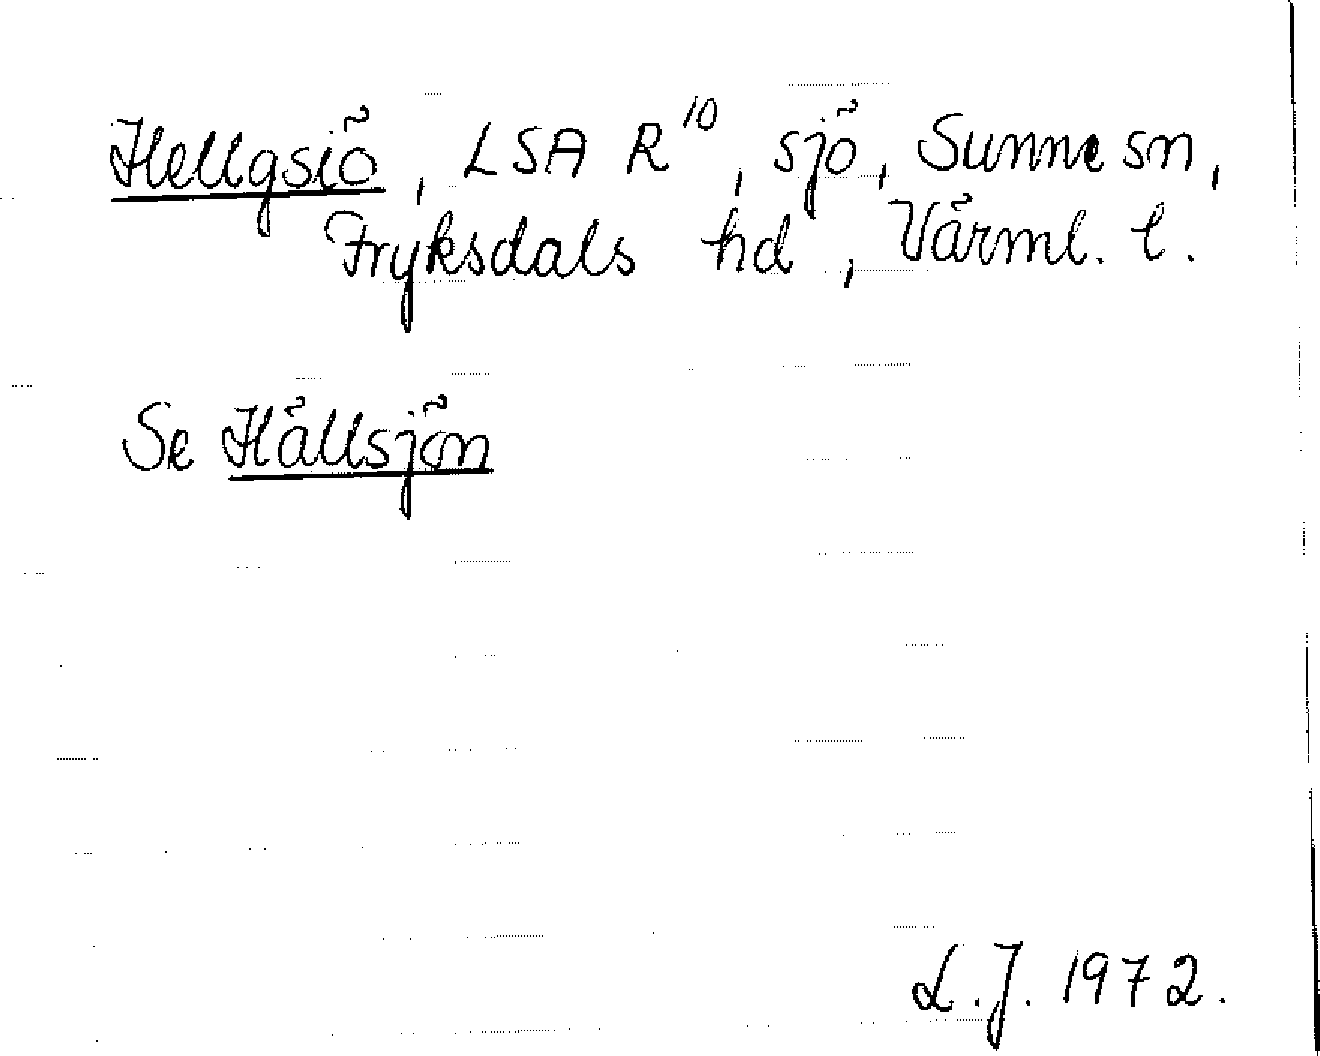 Hellgsiö, LSA R¹⁰, sjö, Sunne sn,
Fryksdals hd, Värml. l.
Se Hällsjön
L.J. 1972.